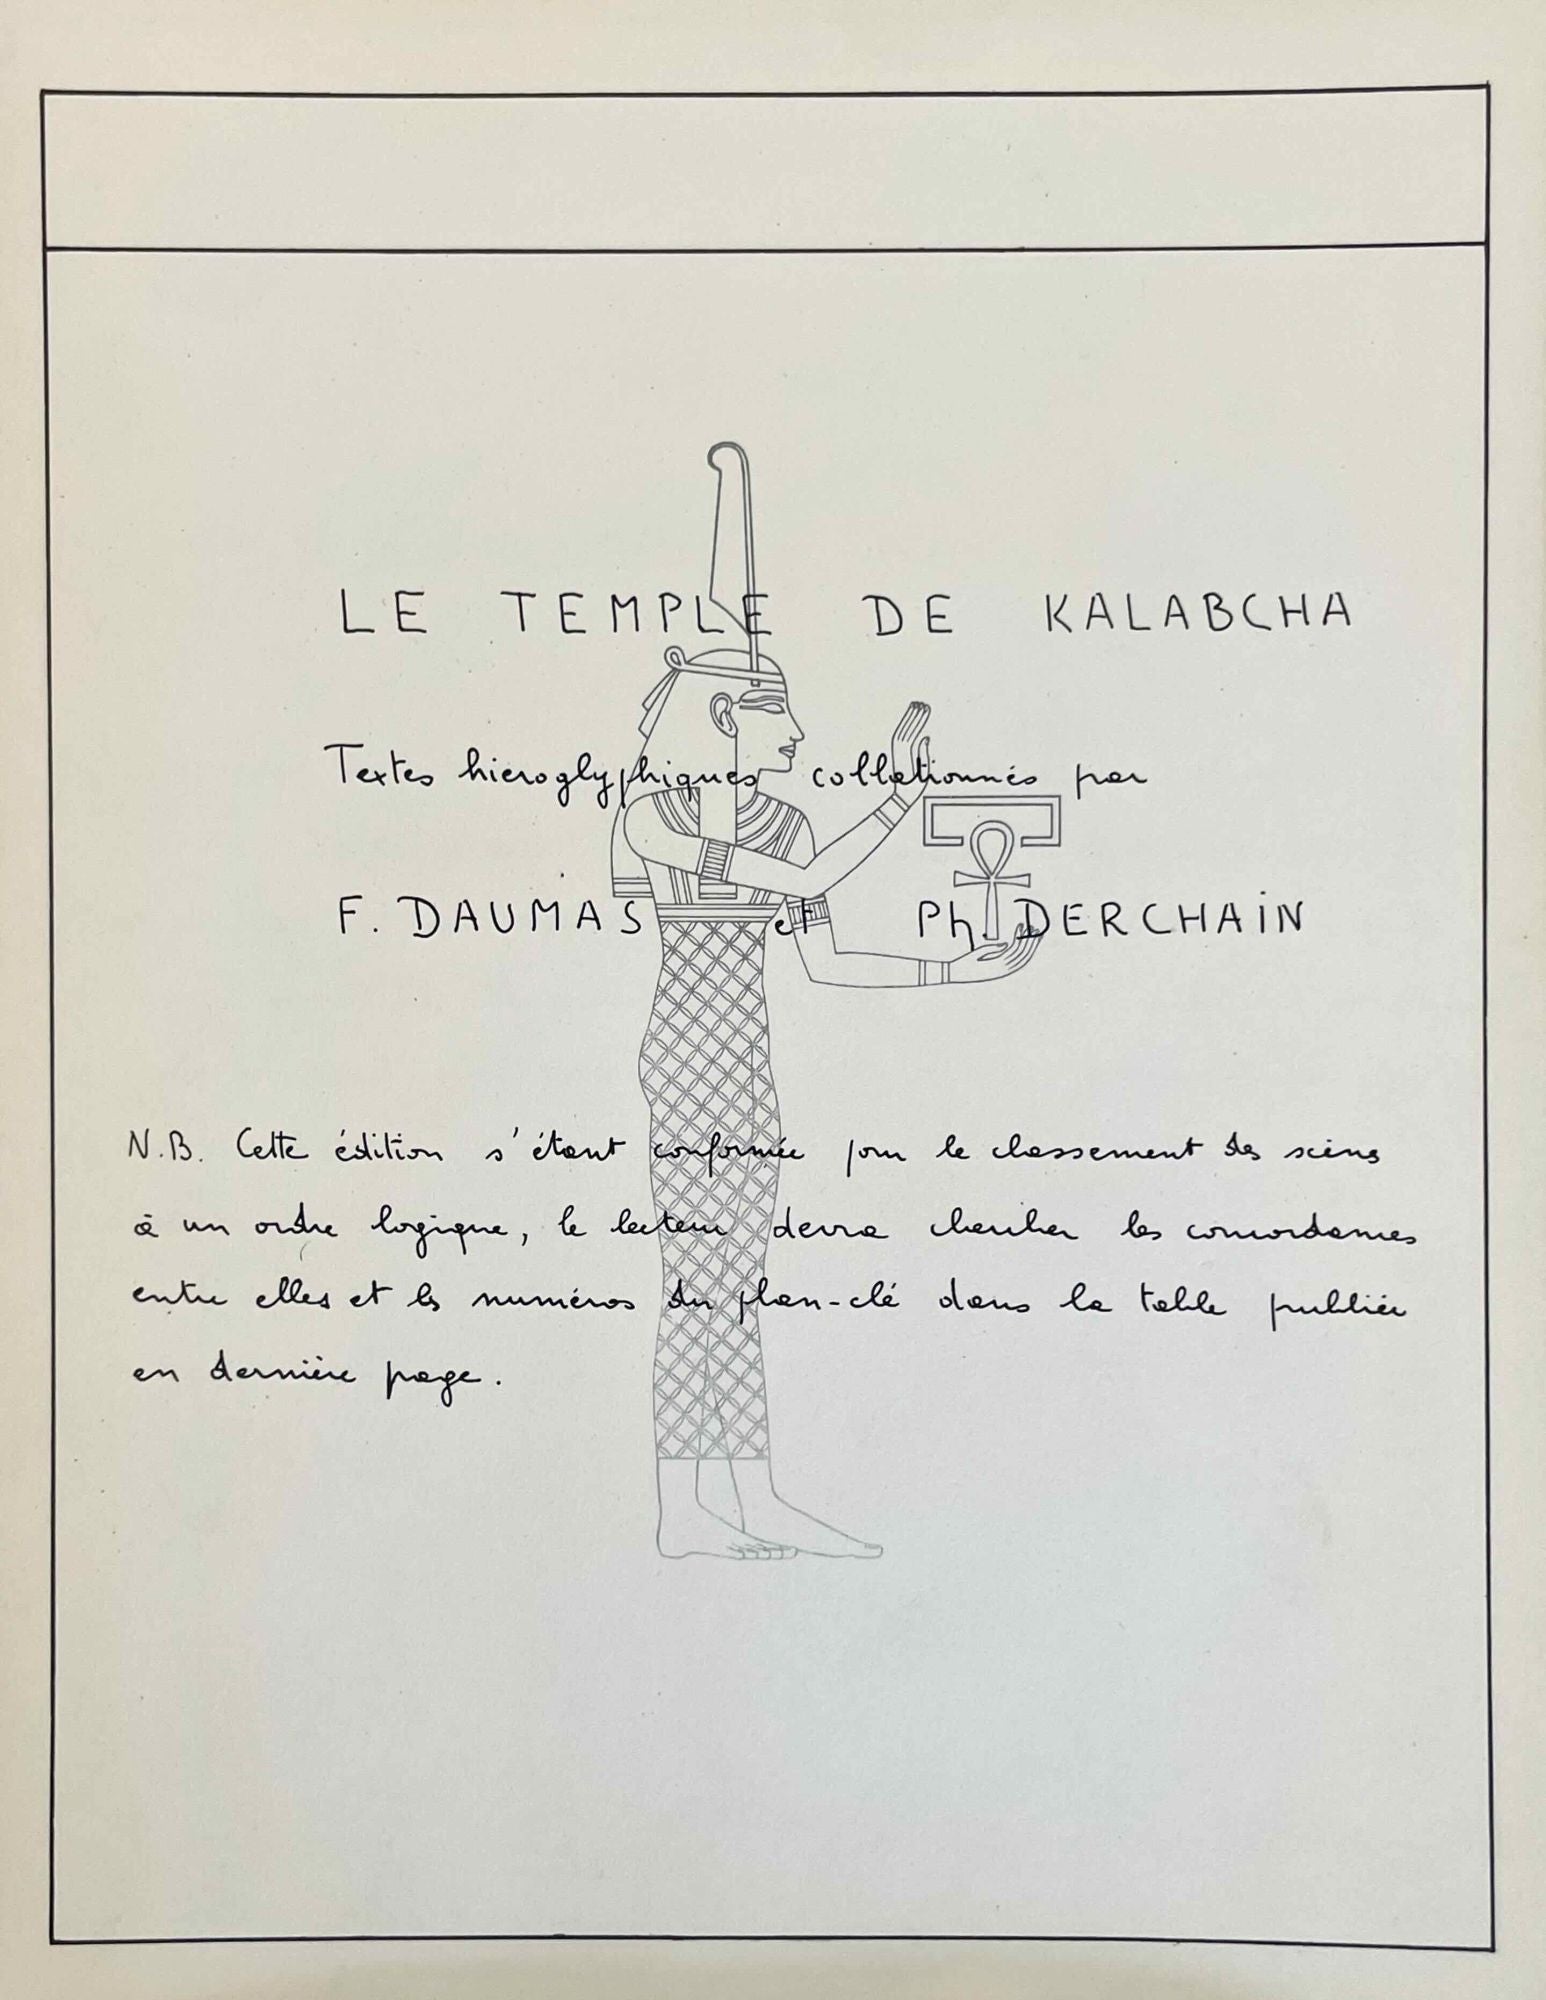 LE TEMPLE DE KALABCHA
Textes hieroglyphiques collationnés par
F. DAUMAS et Ph. DERCHAIN
N.B. Cette édition s'étant conformée pour le classement des scènes
à un ordre logique, le lecteur devra chercher les concordances
entre elles et les numéros du plan-clé dans la table publiée
en dernière page.